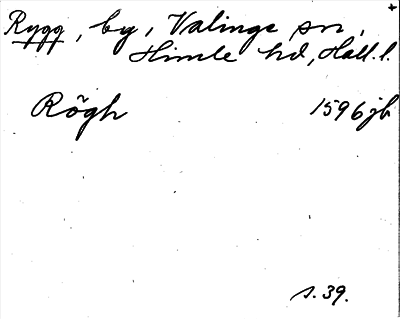 Rygg, by, Valinge sn,
Himle hd, Hall. l.
Rögh 1596 jb
s. 39.